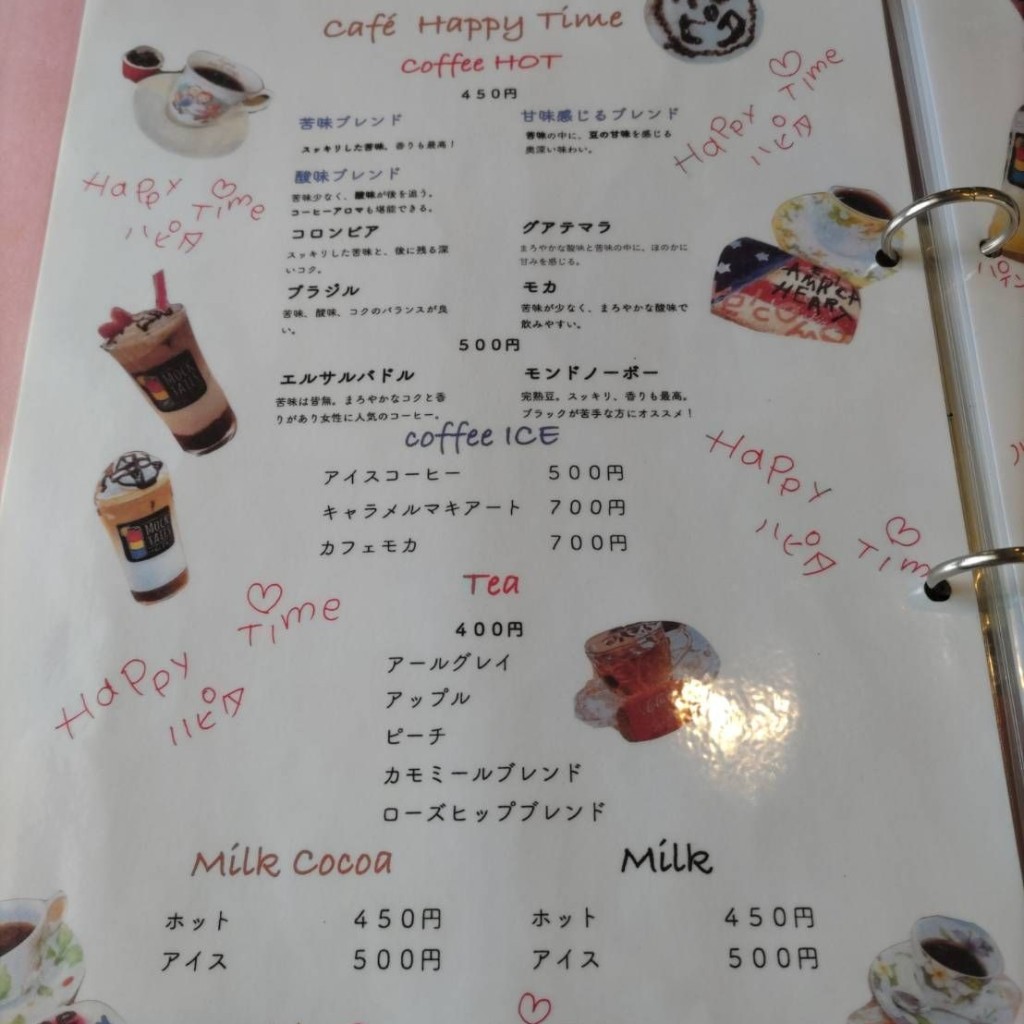 Café Happy Time
ハピタ
Coffee HOT
450円
苦味ブレンド
スッキリした苦味、香りも最高！
甘味感じるブレンド
苦味の中に、豆の甘味を感じる
奥深い味わい。
酸味ブレンド
苦味少なく、酸味が後を追う。
コーヒーアロマも堪能できる。
コロンビア
スッキリした苦味と、後に残る深
いコク。
グアテマラ
まろやかな酸味と苦味の中に、ほのかに
甘みを感じる。
ブラジル
苦味、酸味、コクのバランスが良
い。
モカ
苦味が少なく、まろやかな酸味で
飲みやすい。
500円
エルサルバドル
苦味は皆無。まろやかなコクと香
りがあり女性に人気のコーヒー。
モンドノーボー
完熟豆。スッキリ、香りも最高。
ブラックが苦手な方にオススメ！
coffee ICE
アイスコーヒー 500円
キャラメルマキアート 700円
カフェモカ 700円
Tea
400円
アールグレイ
アップル
ピーチ
カモミールブレンド
ローズヒップブレンド
Milk Cocoa
ホット 450円
アイス 500円
Milk
ホット 450円
アイス 500円
Happy Time
ハピタ
Happy Time
ハピタ
Happy Time
ハピタ
Happy Time
ハピタ
MOCK
TAIL
MOCK
TAIL
HEART
パイン